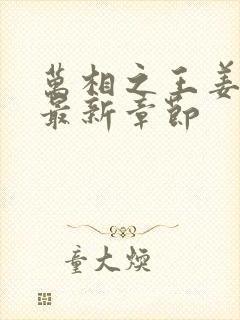 萬相之王姜
最新章節
童大煥